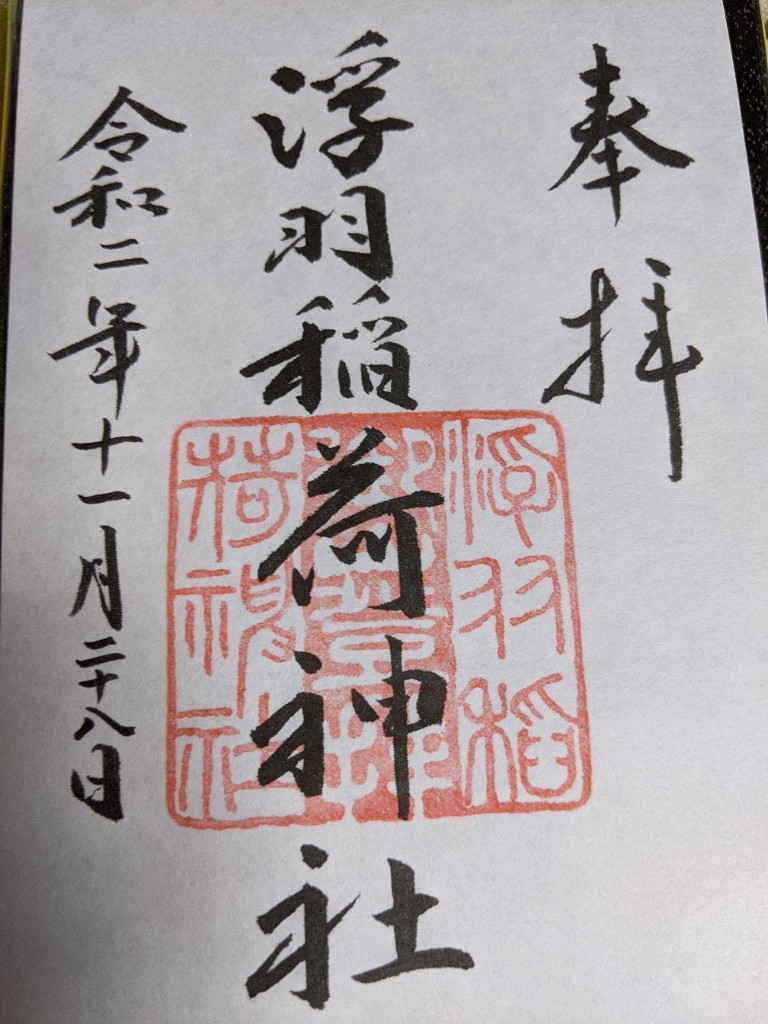 奉拝
浮羽稲荷神社
令和二年十一月二十八日
浮羽稲
荷神社